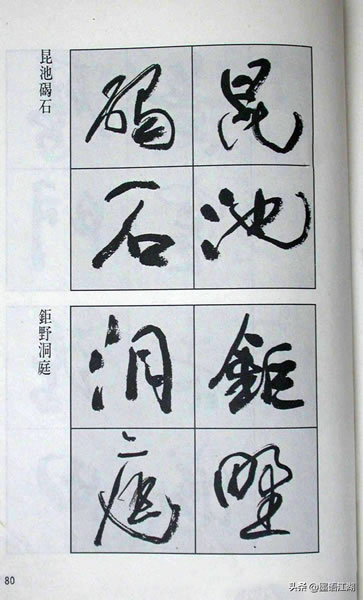 昆池碣石
昆池
碣石
鉅野洞庭
鉅野
洞庭
80
头条@墨语江湖